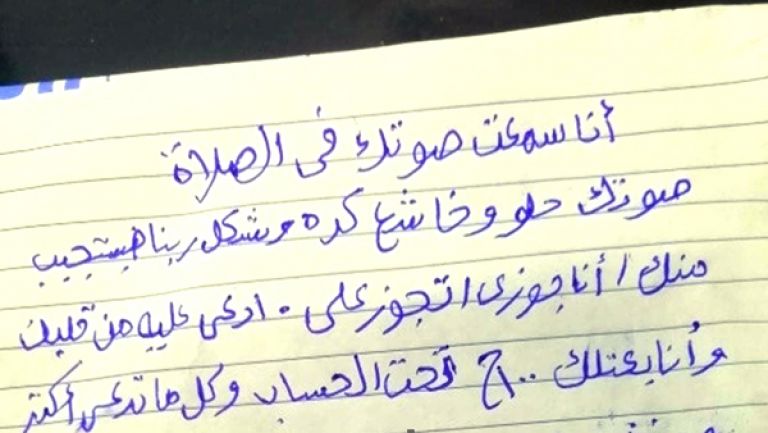 أنا سمعت صوتك في الصلاة
صوتك حلو وخاشع كده وشكل ربنا هيستجيب
منك / أنا جوزى اتجوز على . ادعى عليه من قلبك
وأنا بعتلك ١٠٠ج تحت الحساب وكل ما تدعى أكتر